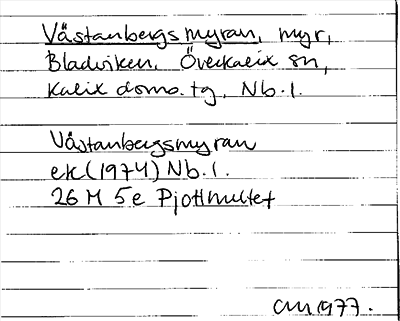 Västanbergsmyran, myr,
Bladviken, Överkalix sn,
Kalix doms. tg, Nb. l.
Västanbergsmyran
ek (1974) Nb. l.
26 M 5e Pjottmultet
1977.